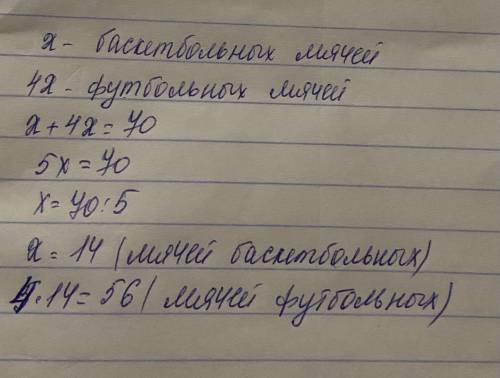 x - баскетбольных мячей
4x - футбольных мячей
x + 4x = 70
5x = 70
x = 70 : 5
x = 14 (мячей баскетбольных)
4 · 14 = 56 (мячей футбольных)